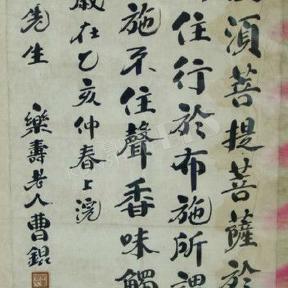 須菩提菩薩於
住行於布施所謂
施不住聲香味觸
歲在乙亥仲春上浣
先生
樂壽老人曹錕